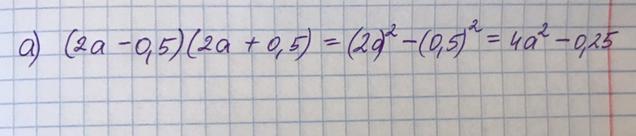 а) (2a - 0,5)(2a + 0,5) = (2a)² - (0,5)² = 4a² - 0,25